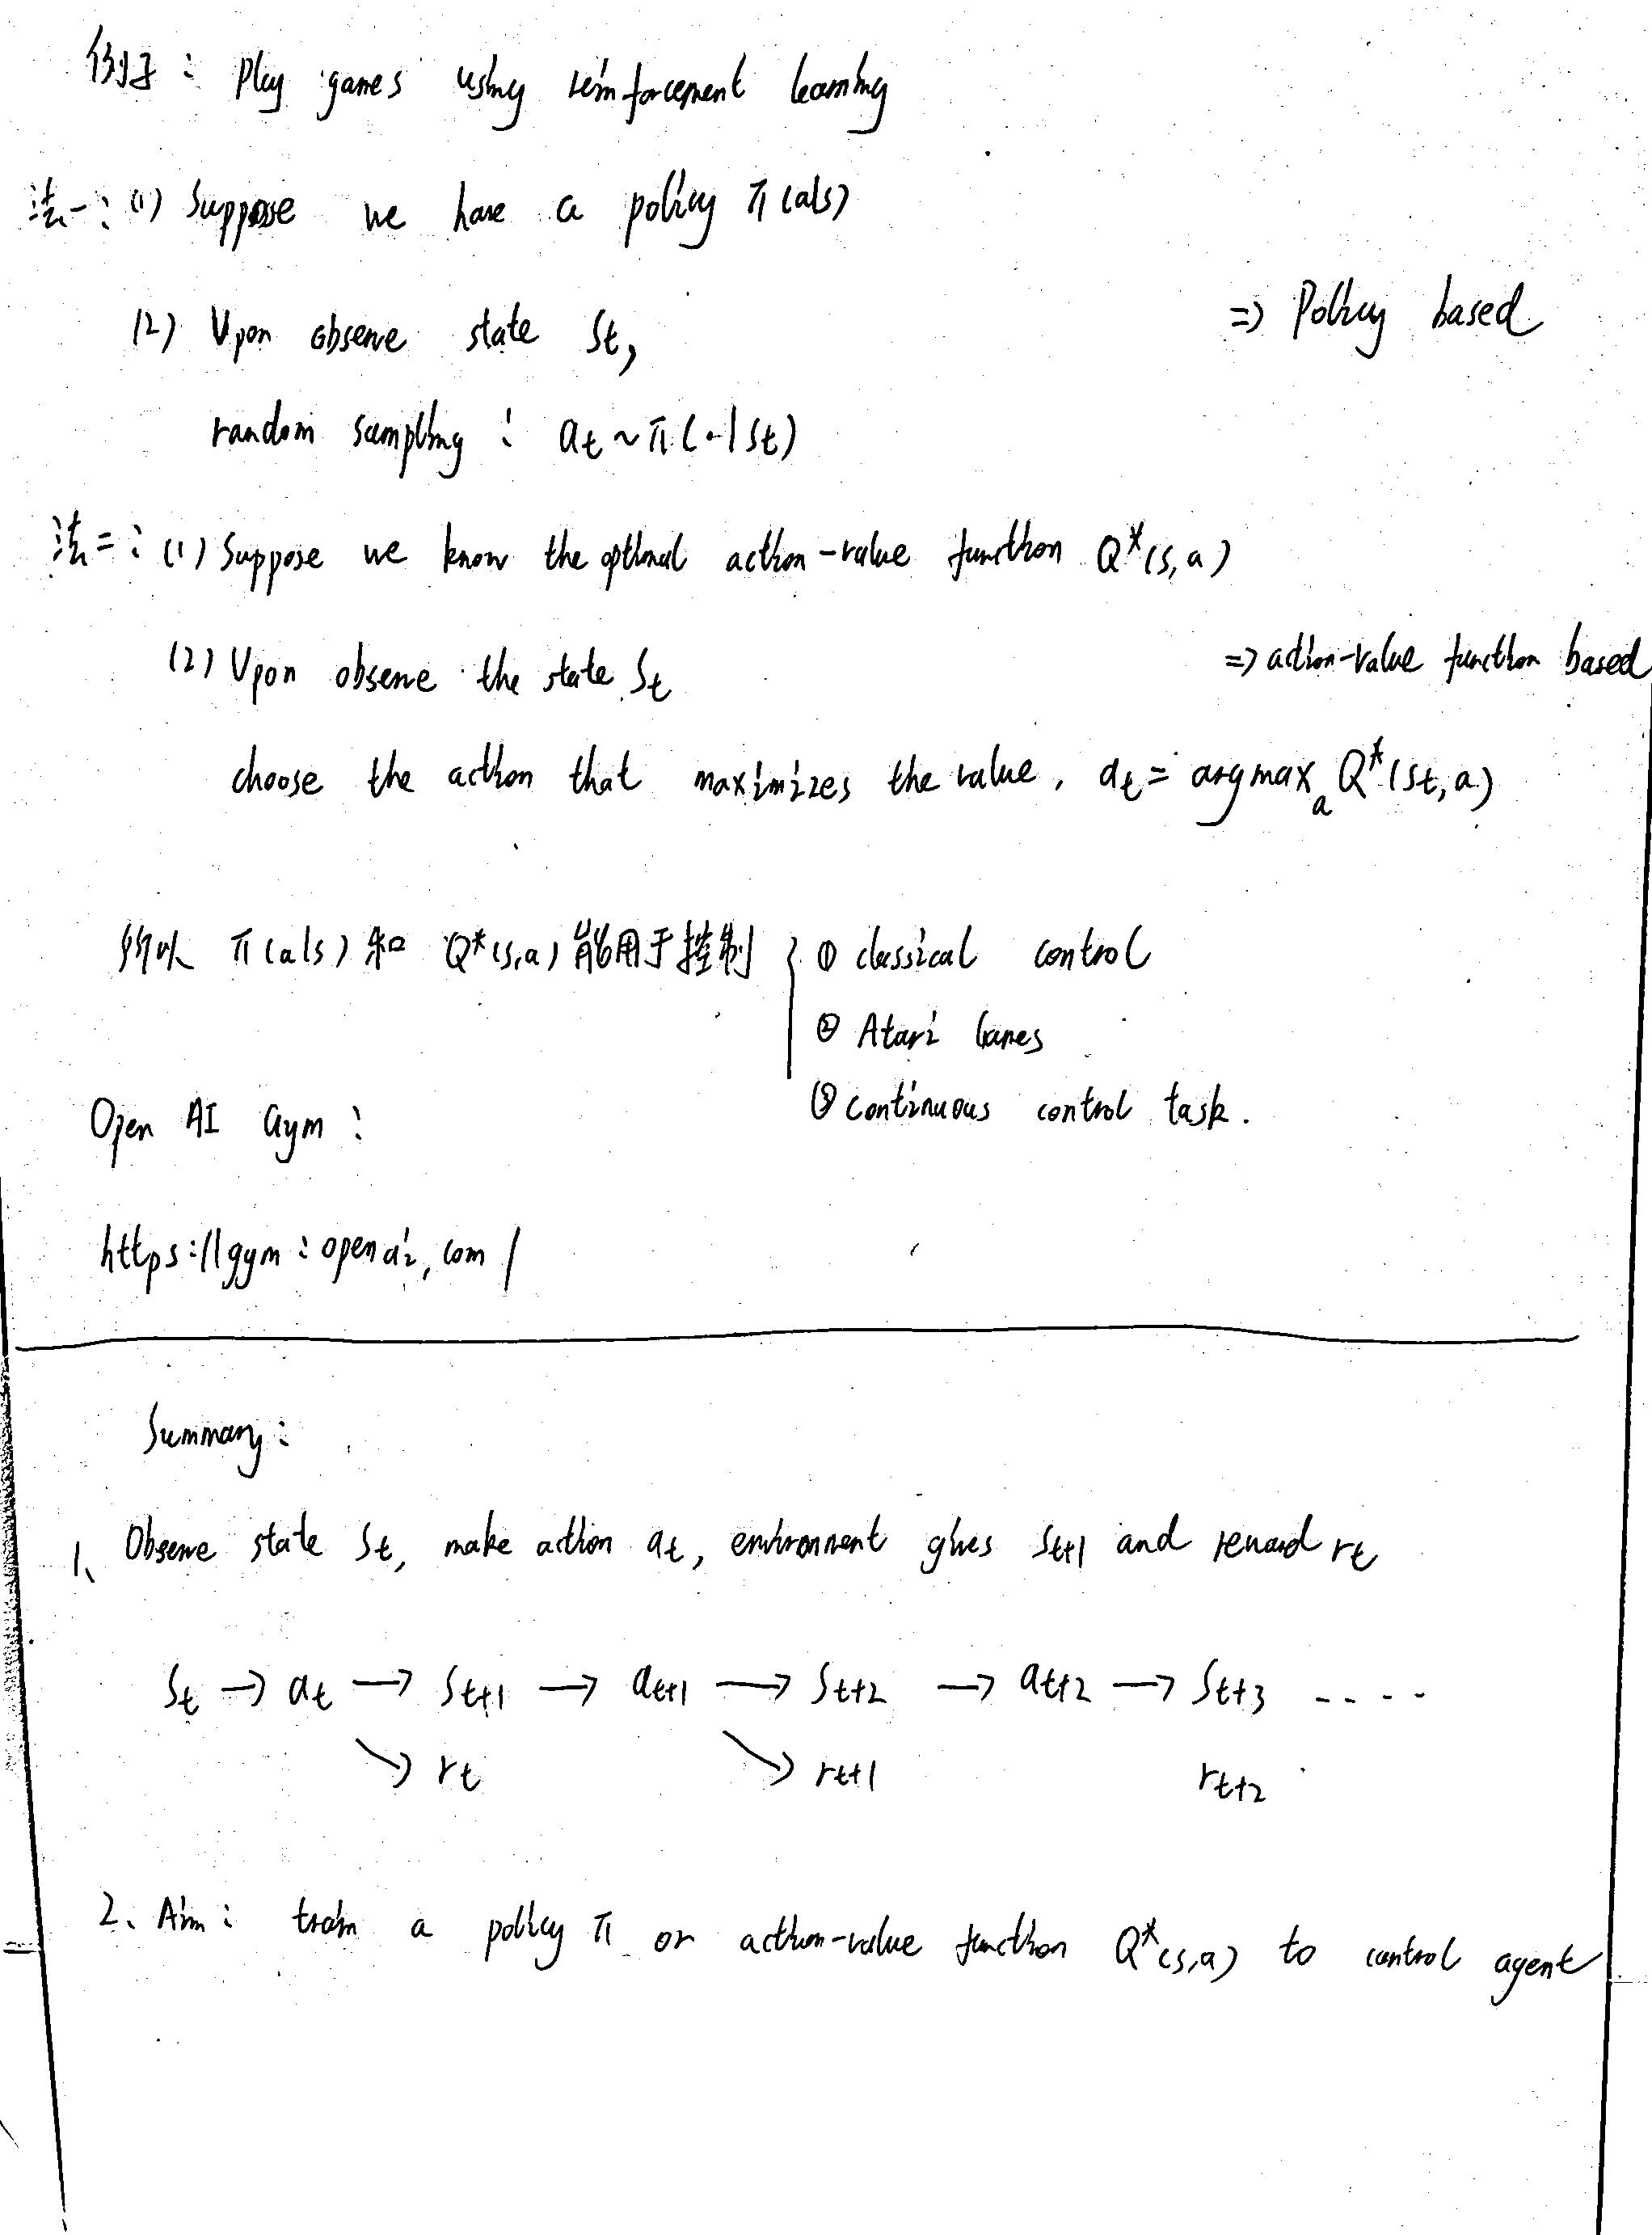 例子：Play games using reinforcement learning
法一：(1) Suppose we have a policy π(a|s)
(2) Upon observe state St,
=> Policy based
random sampling : at ~ π(·|St)
法二：(1) Suppose we know the optional action-value function Q*(s,a)
(2) Upon observe the state St
=> action-value function based
choose the action that maximizes the value, at = argmax a Q*(St,a)
所以 π(a|s) 和 Q*(s,a) 能用于控制 { ① classical control
② Atari Games
③ continuous control task.
Open AI Gym :
https://gym:openai,com/
Summary:
1、Observe state St, make action at, environment gives St+1 and reward rt
St → at → St+1 → at+1 → St+2 → at+2 → St+3 ....
↘ rt ↘ rt+1 rt+2
2、Aim: train a policy π or action-value function Q*(s,a) to control agent